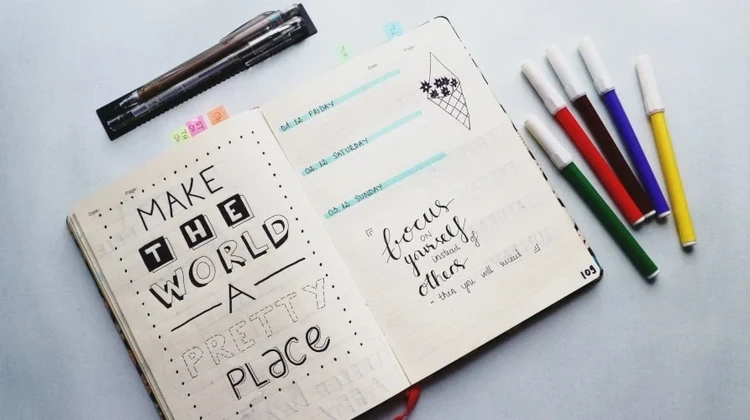 Date
Page
MAKE
THE
WORLD
A
PRETTY
PLACE
Date
Page
01.12 FRIDAY
02.12 SATURDAY
03.12 SUNDAY
focus
ON
yourself
instead of
others
- this you will succeed
105